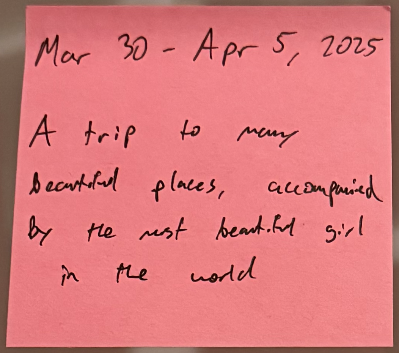 Mar 30 - Apr 5, 2025
A trip to many
beautiful places, accompanied
by the most beautiful girl
in the world